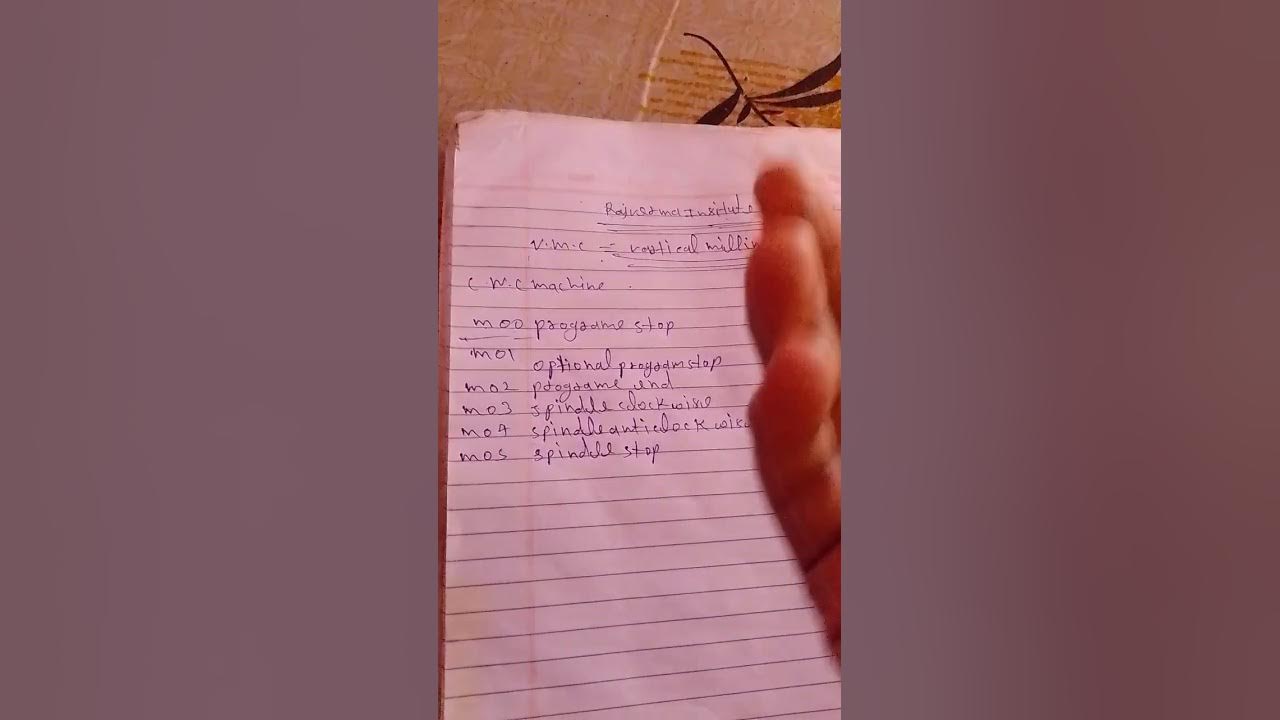 Rajverma Insitute
V.M.C = vartical millin
C N.C machine
m00 programe stop
m01 optional program stop
m02 programe end
m03 spindle clockwise
m04 spindle anticlockwise
m05 spindle stop